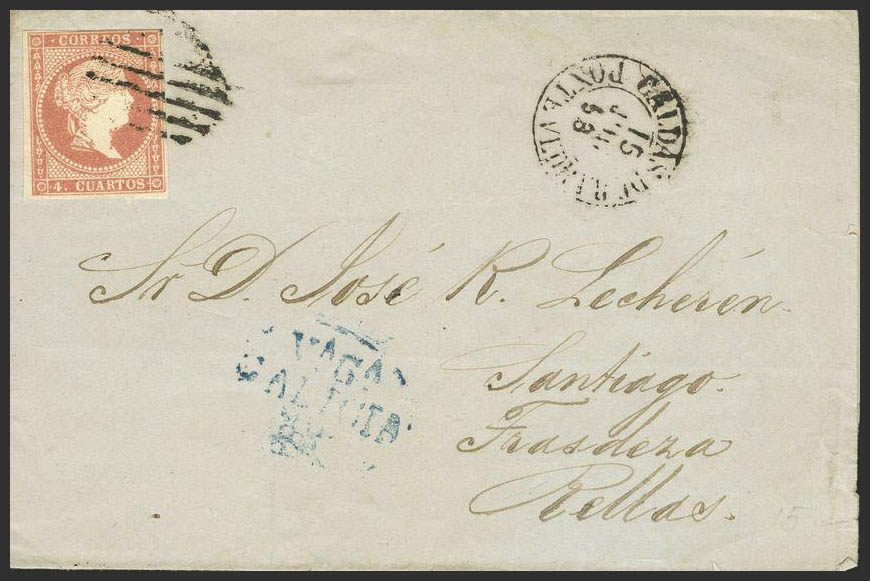 CORREOS
4. CUARTOS
CALDAS DE
PONTEVE
15
JUL
58
Sr D. José R. Lecherén
Santiago.
Frasdeza
Rellas.
GALICIA
15